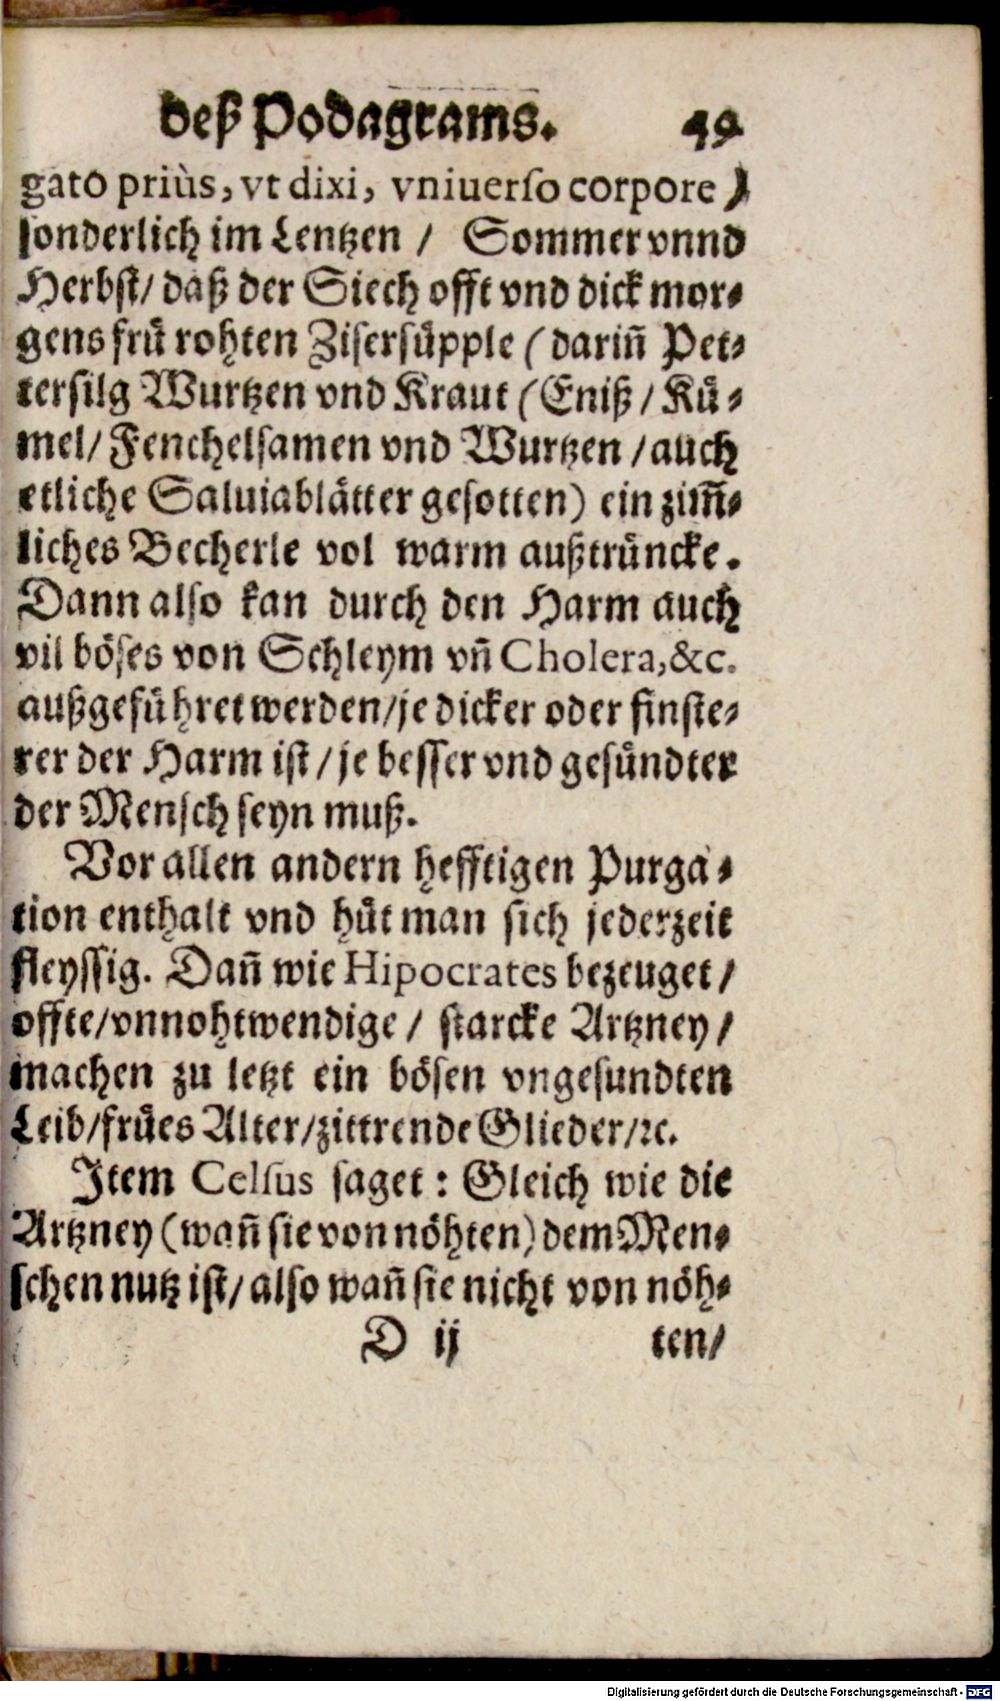 deß Podagrams. 49
gato priùs, vt dixi, vniuerso corpore )
sonderlich im Lentzen / Sommer vnnd
Herbst/ daß der Siech offt vnd dick mor⸗
gens frü rohten Zisersüpple ( dariñ Pet⸗
tersilg Wurtzen vnd Kraut ( Eniß / Kü⸗
mel/ Fenchelsamen vnd Wurtzen / auch
etliche Saluiablätter gesotten) ein zim̃⸗
liches Becherle vol warm außtrüncke.
Dann also kan durch den Harm auch
vil böses von Schleym vñ Cholera, &c.
außgeführet werden/ je dicker oder finste⸗
rer der Harm ist / je besser vnd gesündter
der Mensch seyn muß.
Vor allen andern hefftigen Purga⸗
tion enthalt vnd hüt man sich jederzeit
fleyssig. Dañ wie Hipocrates bezeuget /
offte/ vnnohtwendige / starcke Artzney /
machen zu letzt ein bösen vngesundten
Leib/ frües Alter/ zittrende Glieder/ ꝛc.
Item Celsus saget : Gleich wie die
Artzney (wañ sie von nöhten) dem Men⸗
schen nutz ist/ also wañ sie nicht von nöh⸗
D ij ten/
Digitalisierung gefördert durch die Deutsche Forschungsgemeinschaft - DFG